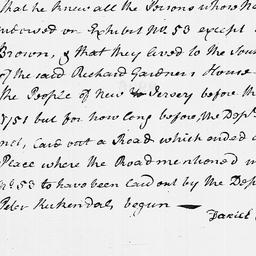 that he knew all the Persons whose Na
endorsed on Exhibit No 53 except
Brown, & that they lived to the Sou
of the said Richard Gardners House
the People of New Jersey before th
1751 but for how long before, the Depo
ne, laid out a Road which ended a
Place where the Road mentioned in
No 53 to have been laid out by the Dep
Peter Kuykendal, begun —